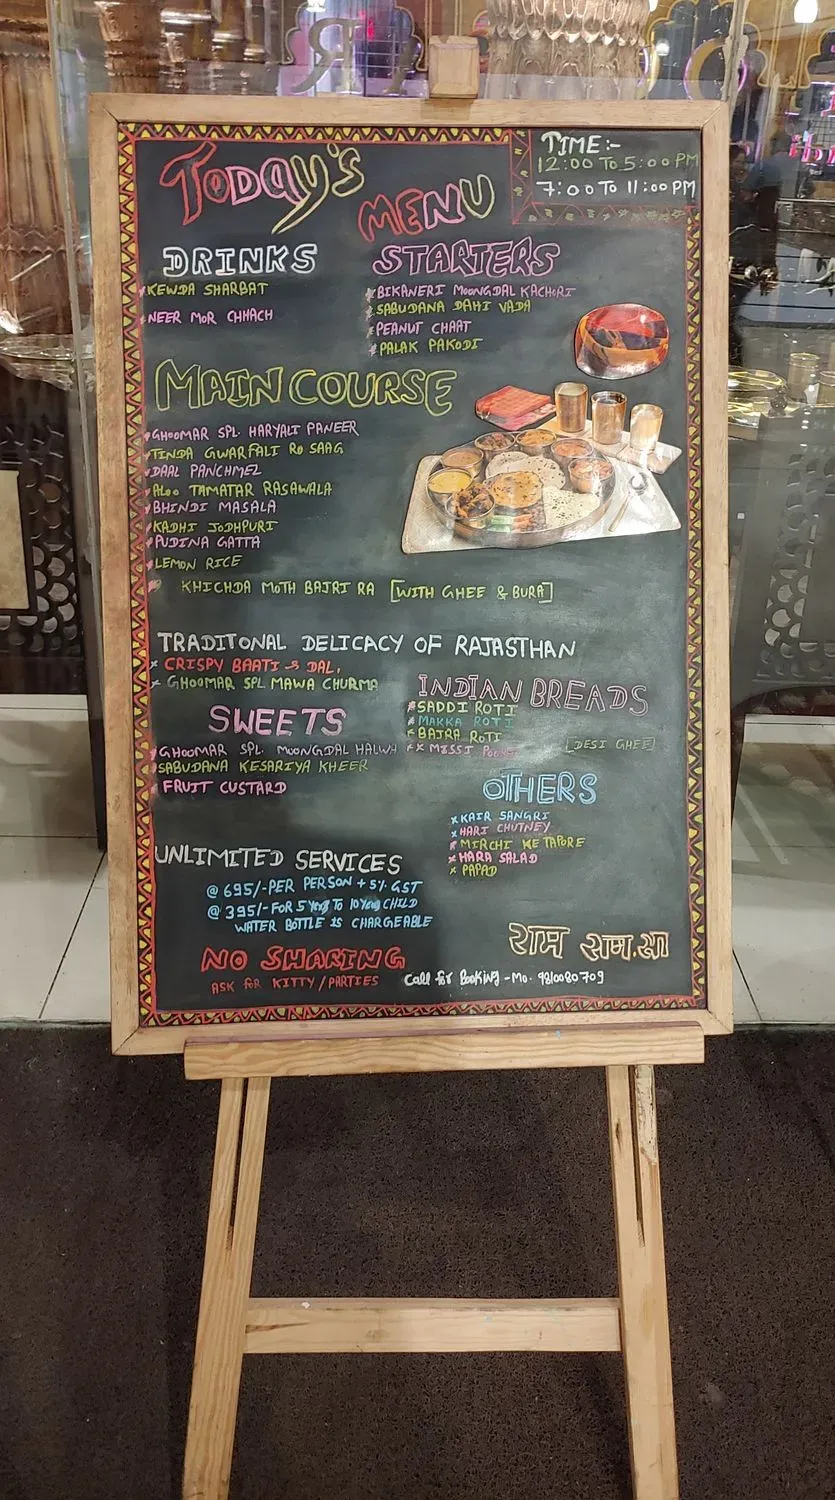 TODAY'S
MENU
TIME:-
12:00 TO 5:00 PM
7:00 TO 11:00 PM
DRINKS
KEWDA SHARBAT
NEER MOR CHHACH
STARTERS
BIKANERI MOONGDAL KACHORI
SABUDANA DAHI VADA
PEANUT CHAAT
PALAK PAKODI
MAIN COURSE
GHOOMAR SPL HARYALI PANEER
TINDA GWARFALI RO SAAG
DAAL PANCHMEL
ALOO TAMATAR RASAWALA
BHINDI MASALA
KADHI JODHPURI
PUDINA GATTA
LEMON RICE
KHICHDA MOTH BAJRI RA [WITH GHEE & BURA]
TRADITONAL DELICACY OF RAJASTHAN
CRISPY BAATI → DAL,
GHOOMAR SPL MAWA CHURMA
INDIAN BREADS
SADDI ROTI
MAKKA ROTI
BAJRA ROTI
MISSI
[DESI GHEE]
SWEETS
GHOOMAR SPL. MOONGDAL HALWA
SABUDANA KESARIYA KHEER
FRUIT CUSTARD
OTHERS
KAIR SANGRI
HARI CHUTNEY
MIRCHI KE TAPORE
HARA SALAD
PAPAD
UNLIMITED SERVICES
@ 695/-PER PERSON + 5% GST
@ 395/-FOR 5 Years TO 10 Years CHILD
WATER BOTTLE IS CHARGEABLE
राम राम.सा
NO SHARING
ASK for KITTY/PARTIES
Call for Booking - Mo. 9810080709